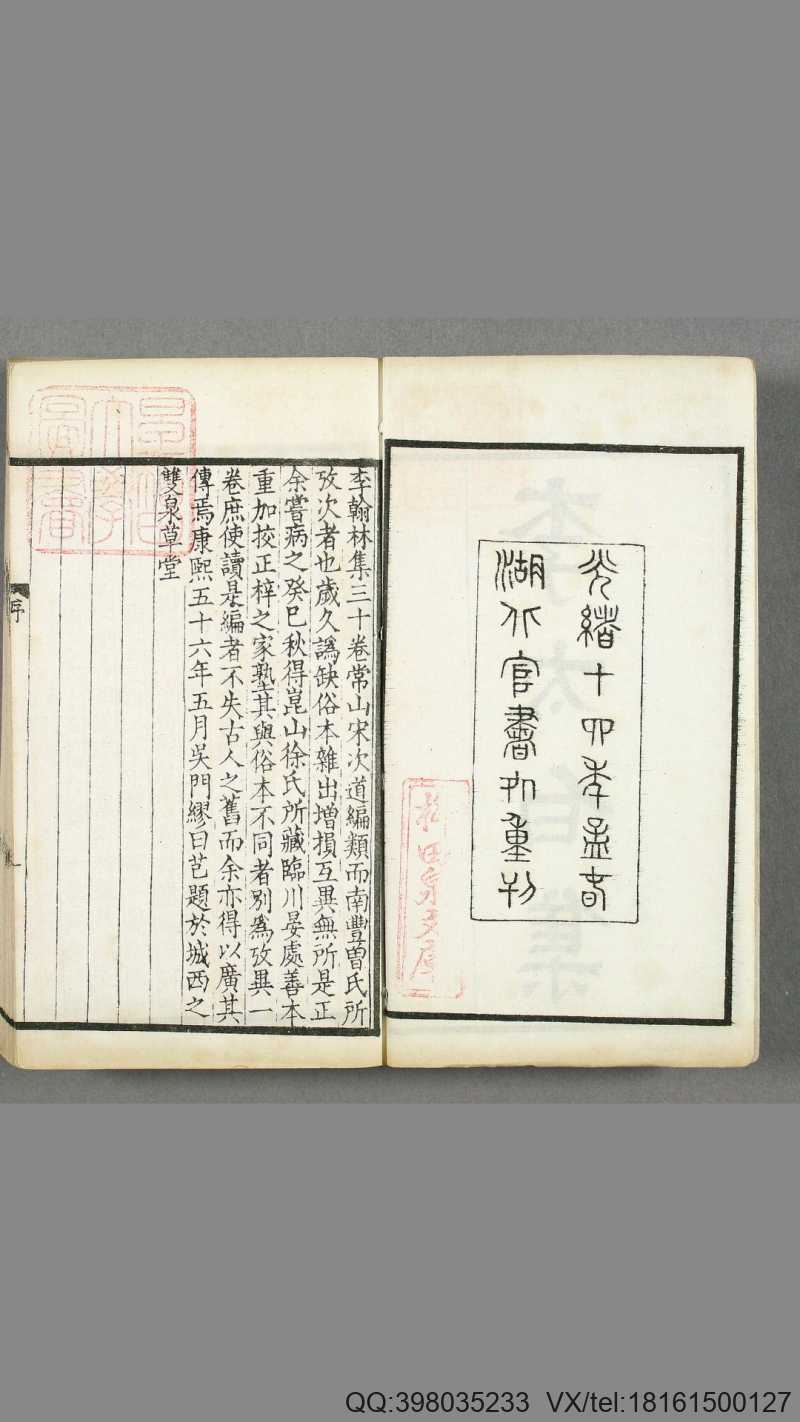 光緒十四年孟春
湖北官書処重刊
李翰林集三十卷常山宋次道編類而南豐曽氏所
攷次者也歲久譌缺俗本雜出増損互異無所是正
余嘗病之癸巳秋得崑山徐氏所藏臨川晏處善本
重加挍正梓之家塾其與俗本不同者别為攷異一
卷庶使讀是編者不失古人之舊而余亦得以廣其
傳焉康熙五十六年五月吳門繆曰芑題於城西之
雙泉草堂
序
李太白集
QQ:398035233 VX/tel:18161500127